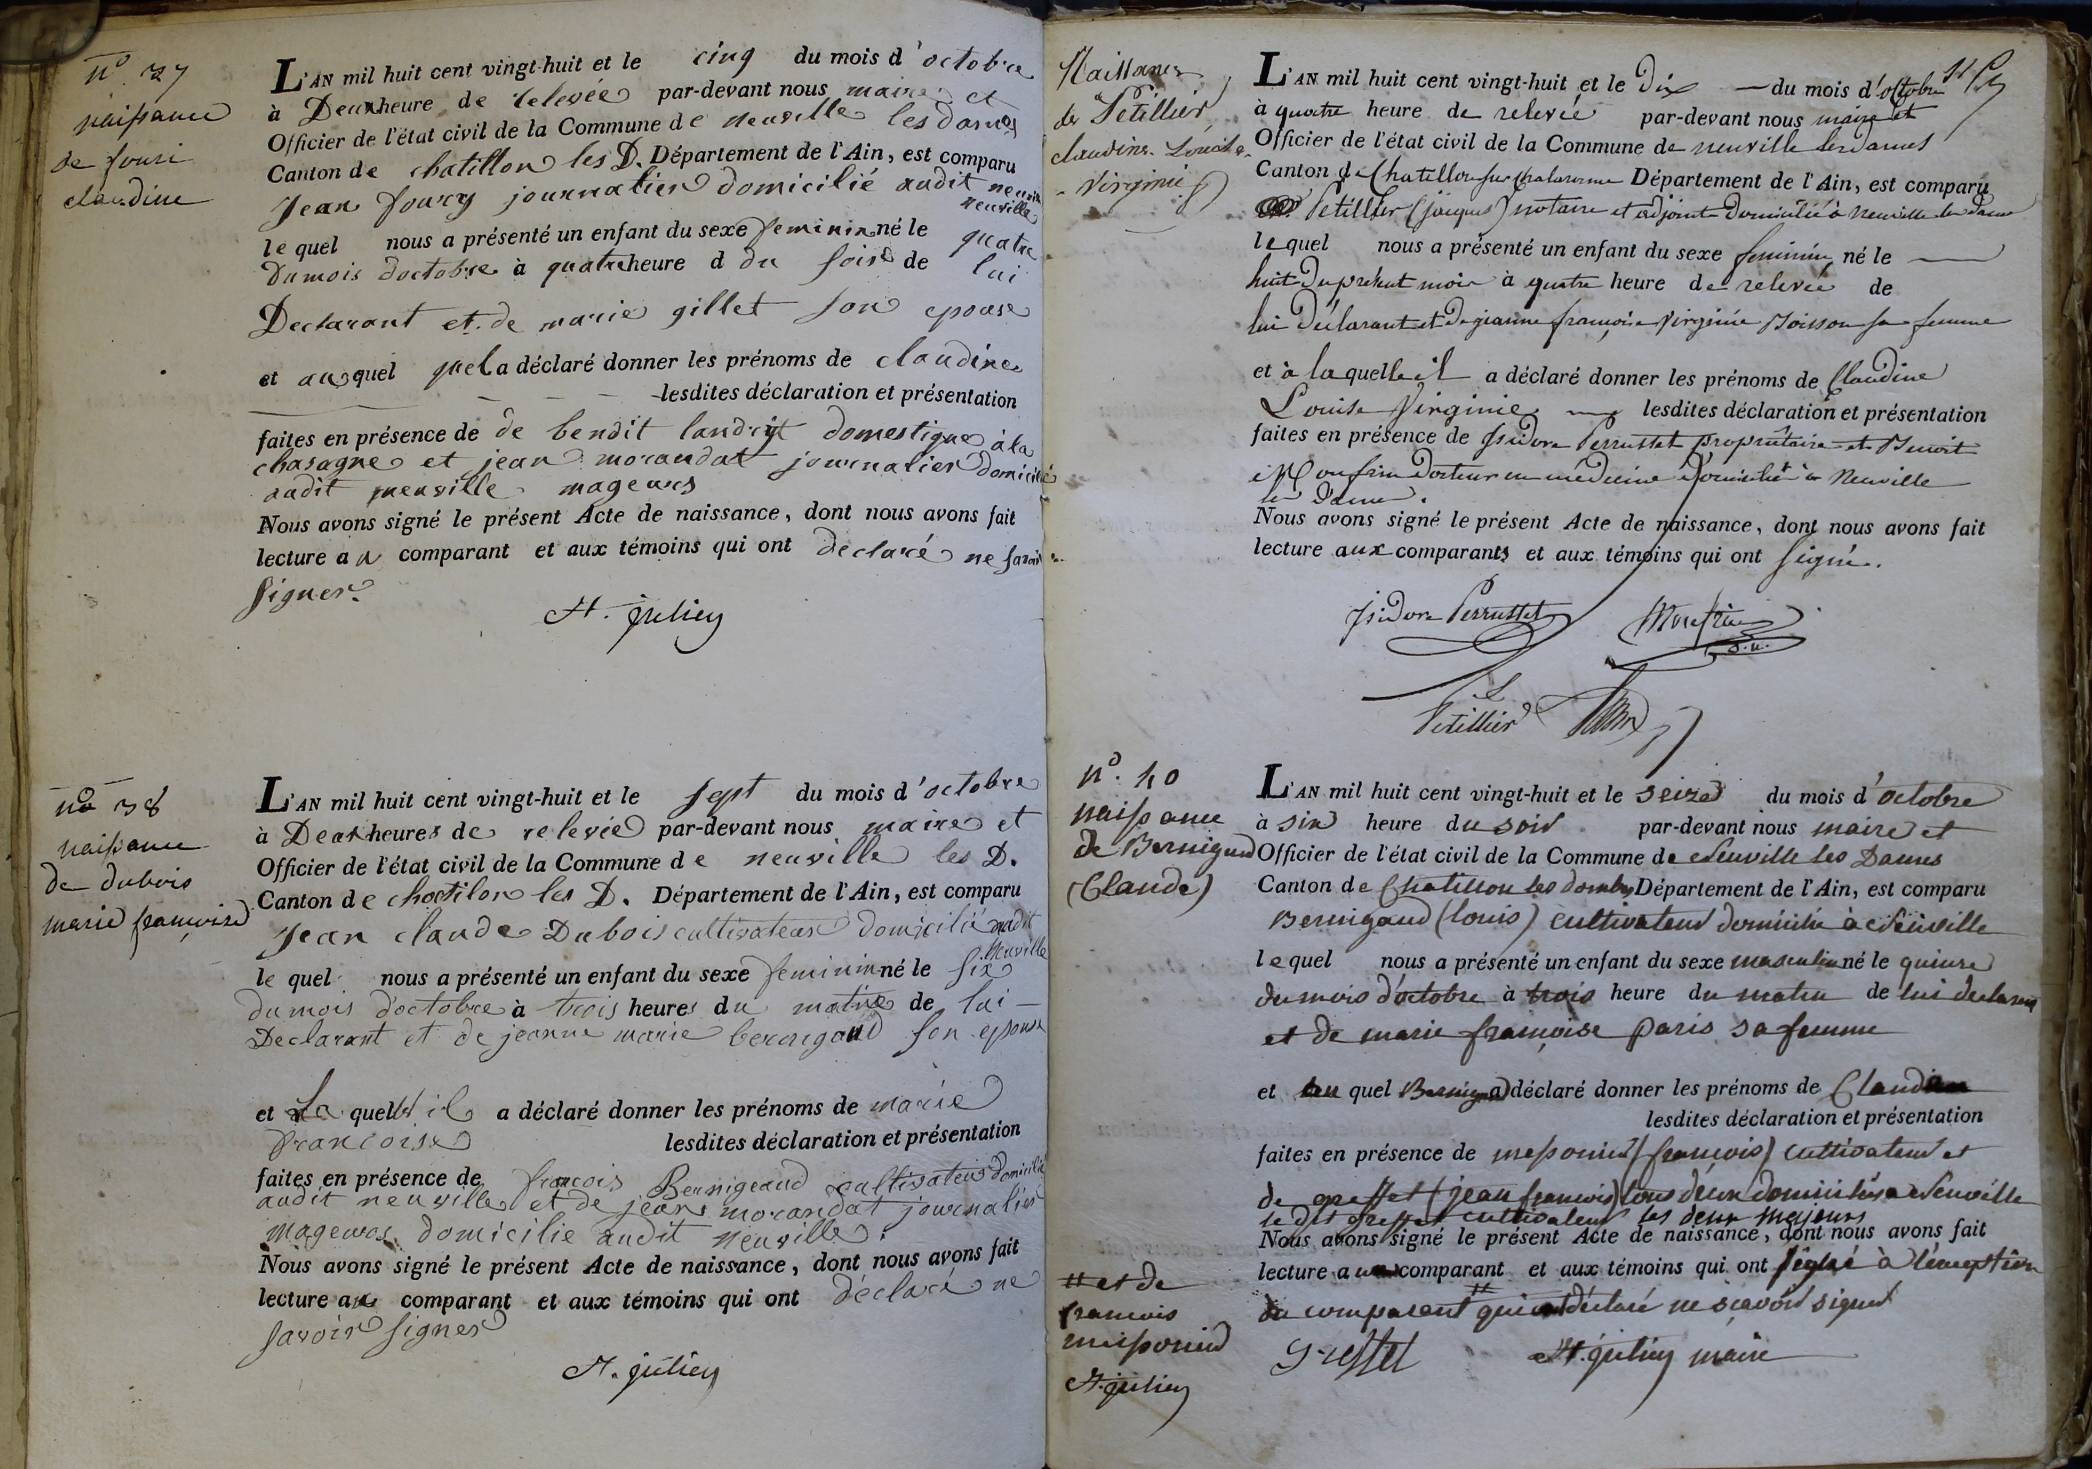 nº 37
naissance
de fouri
claudine
L'AN mil huit cent vingt-huit et le cinq du mois d'octobre
à Deux heure de relevée par-devant nous maire et
Officier de l'état civil de la Commune de neuville les dames
Canton de chatillon les D. Département de l'Ain, est comparu
Jean foury journalier domicilié audit neuville
neuville
le quel nous a présenté un enfant du sexe feminin né le quatre
du mois doctobre à quatre heure d du soir de lui
Declarant et de marie gillet son epouse
et auquel quel a déclaré donner les prénoms de claudine
lesdites déclaration et présentation
faites en présence de de bendit landryt domestique à la
chasagne et jean morandat journalier domicilié
audit neuville mageurs
Nous avons signé le présent Acte de naissance, dont nous avons fait
lecture au comparant et aux témoins qui ont declaré ne savoir
signer.
St. julien
nº 38
naissance
de dubois
marie françoise
L'AN mil huit cent vingt-huit et le sept du mois d'octobre
à Deux heures de relevée par-devant nous maire et
Officier de l'état civil de la Commune de neuville les D.
Canton de chatilon les D. Département de l'Ain, est comparu
Jean claude Dubois cultivateur domicilié audit
neuville
le quel nous a présenté un enfant du sexe feminin né le six
du mois doctobre à trois heures du matin de lui
Declarant et de jeanne marie bernigaud son epouse
et La quelle il a déclaré donner les prénoms de marie
francoise lesdites déclaration et présentation
faites en présence de francois Bernigeaud cultivateur domicilié
audit neuville et de jean morandat journalier
mageurs domicilie audit neuville.
Nous avons signé le présent Acte de naissance, dont nous avons fait
lecture au comparant et aux témoins qui ont déclaré ne
savoir signer
St. julien
Naissance
de Petillier
claudine Louise
Virginie
L'AN mil huit cent vingt-huit et le Dix du mois d'octobre
à quatre heure de relevée par-devant nous maire et
Officier de l'état civil de la Commune de neuville les dames
Canton de Chatillon sur chalaronne Département de l'Ain, est comparu
Petillier (jacques) notaire et adjoint Domicilié à neuville les dames
le quel nous a présenté un enfant du sexe feminin né le
huit du présent mois à quatre heure de relevée de
lui Déclarant et de jeanne françoise Virginie Moisson sa femme
et à laquelle il a déclaré donner les prénoms de Claudine
Louise Virginie lesdites déclaration et présentation
faites en présence de Isidore Perrusset propriétaire et Benoit
Monfrin Docteur en médecine Domiciliés à Neuville
les Dames.
Nous avons signé le présent Acte de naissance, dont nous avons fait
lecture aux comparants et aux témoins qui ont signé.
Isidore Perrusset Monfrin
Petillier
nº. 40
naissance
de Bernigaud
(Claude)
L'AN mil huit cent vingt-huit et le seize du mois d'octobre
à six heure du soir par-devant nous maire et
Officier de l'état civil de la Commune de Neuville les Dames
Canton de Chatillon les dombes Département de l'Ain, est comparu
Bernigaud (louis) cultivateur domicilie à Neuville
le quel nous a présenté un enfant du sexe masculin né le quinze
du mois d'octobre à trois heure du matin de lui declarant
et de marie françoise paris sa femme
et au quel Bernigaud a déclaré donner les prénoms de Claude
lesdites déclaration et présentation
faites en présence de messonier (françois) cultivateur et
de greffet (jean francois) tous deux domiciliés a Neuville
le dit greffet cultivateur les deux majeurs
Nous avons signé le présent Acte de naissance, dont nous avons fait
lecture au comparant et aux témoins qui ont signé à l'éxception
du comparant qui ont déclaré ne sçavoir signer
et de
francois
messonier
St. julien
Greffet St. julien maire